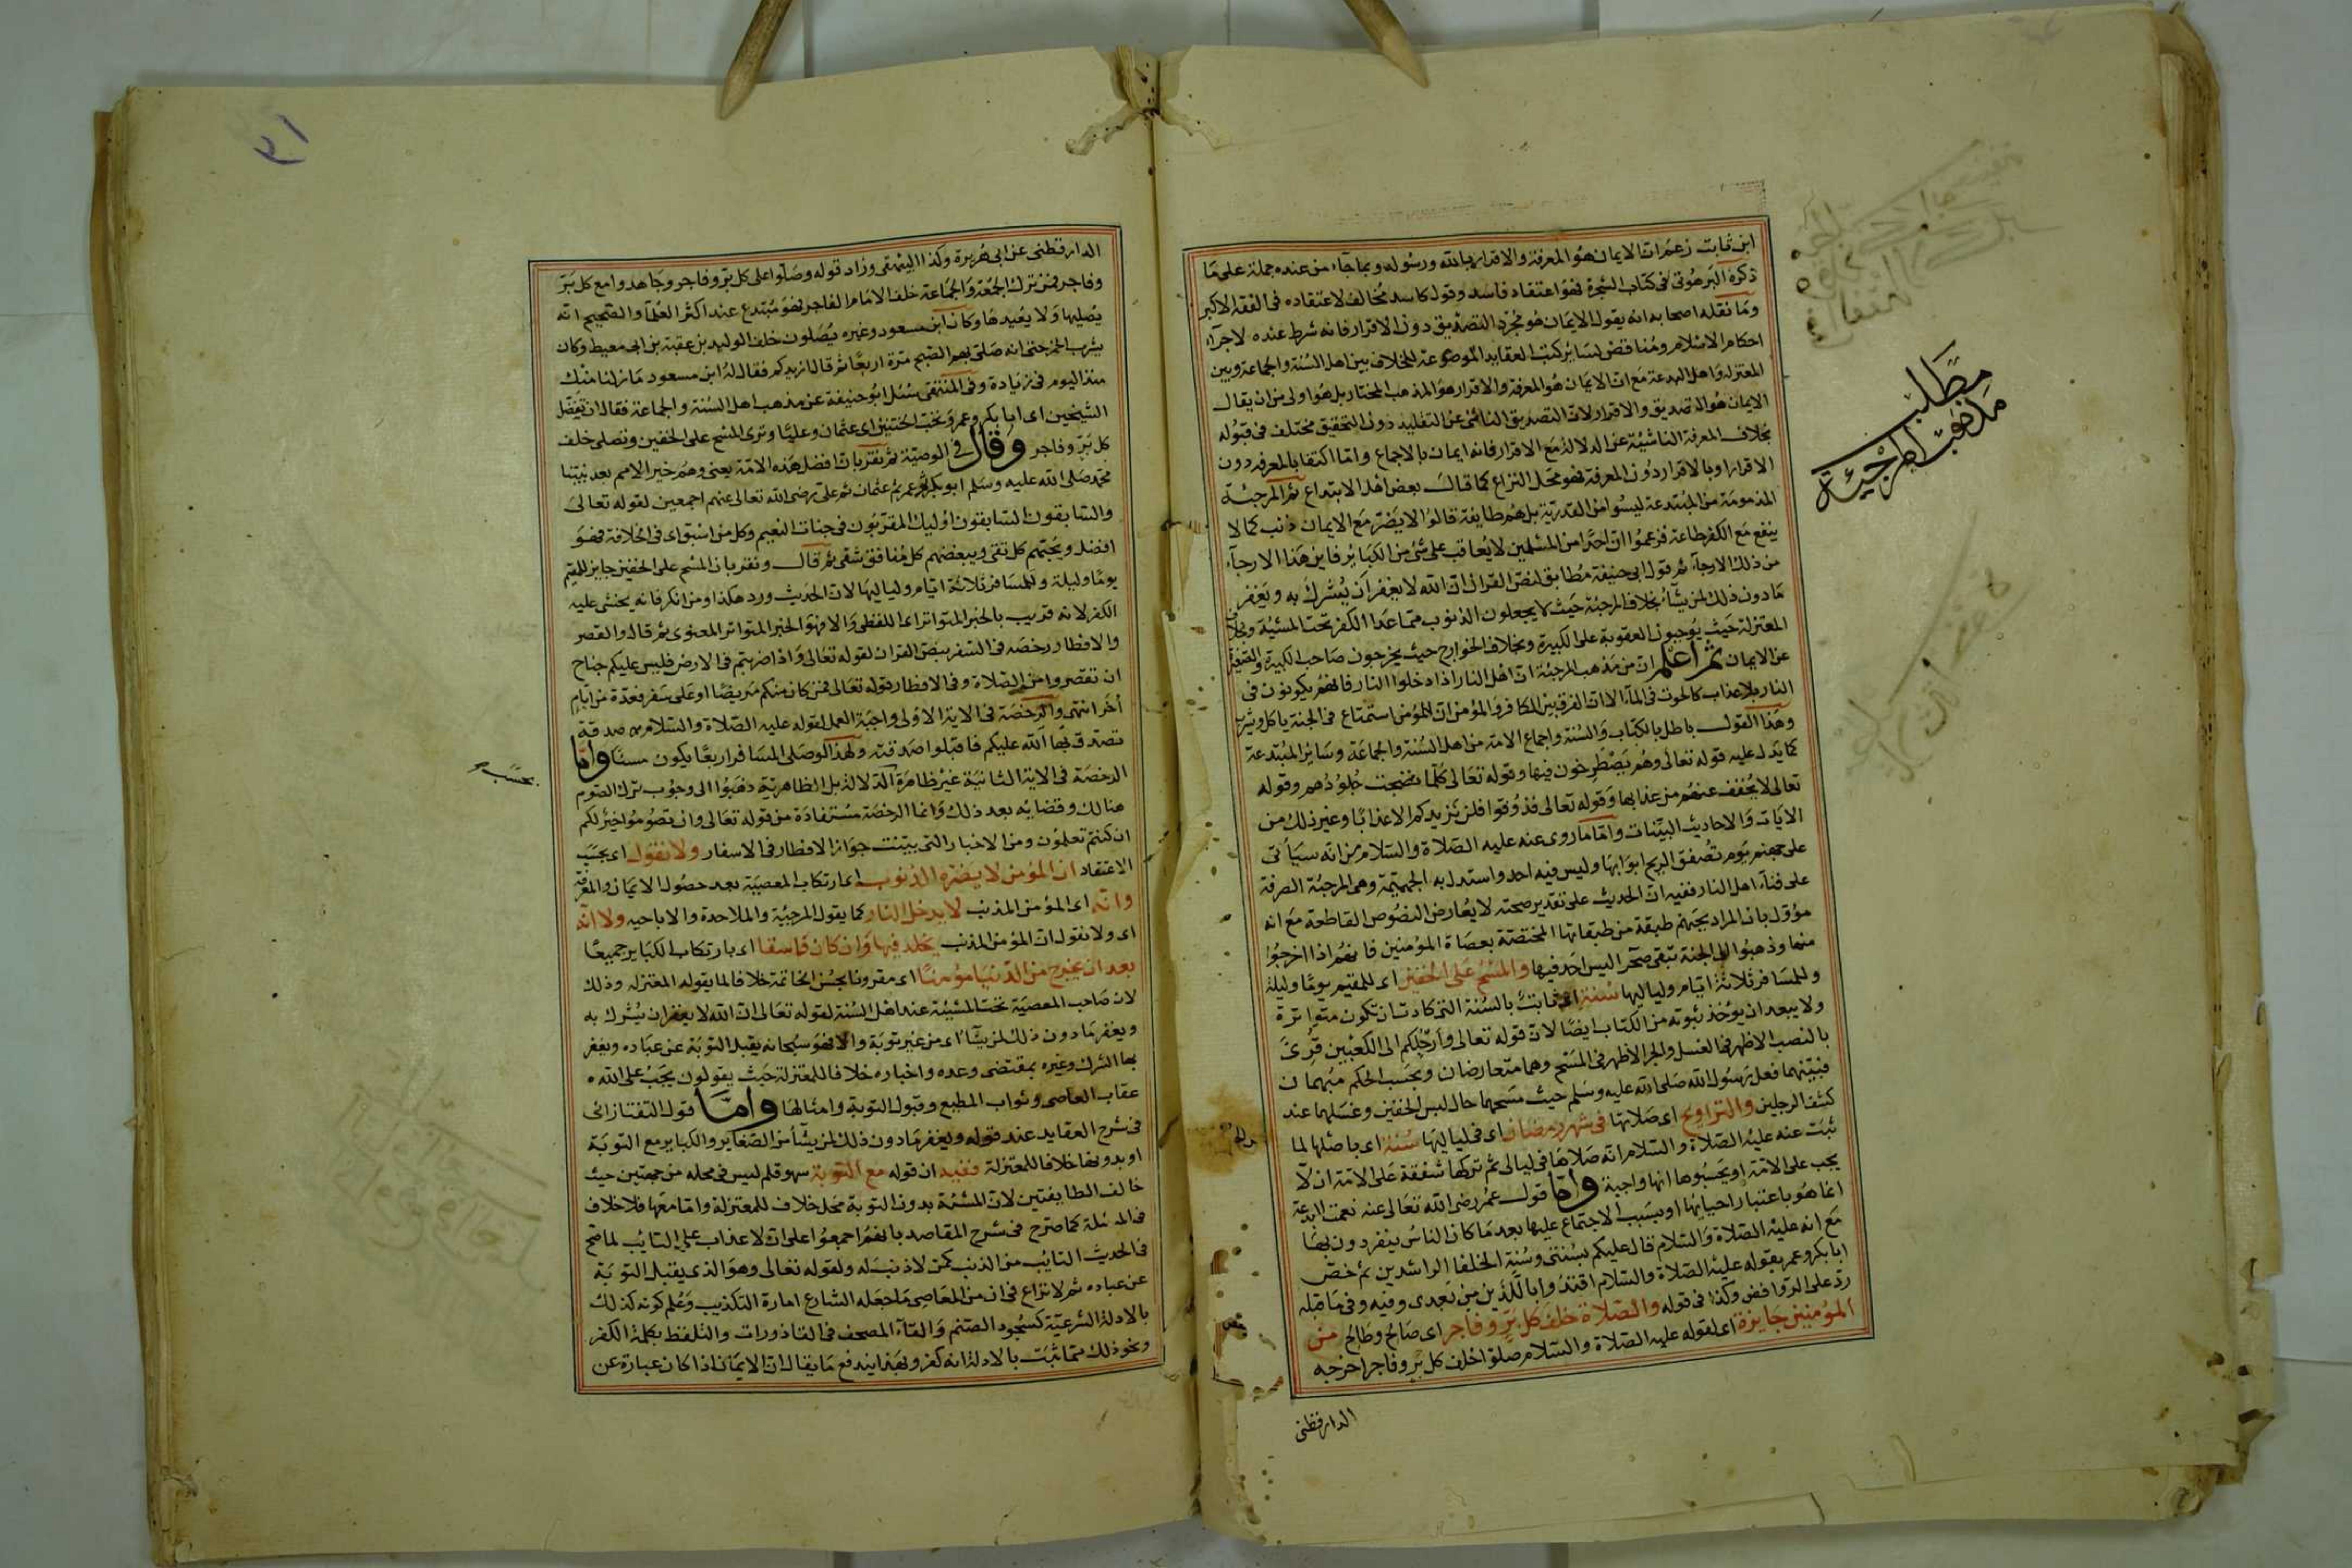 ابن ثابت زعم ان الايمان هو المعرفة والاقرار بالله ورسوله وبما جاء من عنده جملة على ما
ذكره البرهوتى فى كتاب الشجرة فهو اعتقاد فاسد وقول كاسد مخالف لاعتقاده فى الفقه الاكبر
وما نقله اصحابه انه يقول الايمان هو مجرد التصديق دون الاقرار فانه شرط عنده لاجرآء
احكام الاسلام ومناقض لسائر كتب العقايد الموضوعة للخلاف بين اهل السنة والجماعة وبين
المعتزله واهل البدعة مع ان الايمان هو المعرفة والاقرار هو المذهب المختار بل هو اولى من ان يقال
الايمان هو التصديق والاقرار لان التصديق الناشئ عن التقليد دون التحقيق مختلف فى قبوله
بخلاف المعرفة الناشية عن الدلالة مع الاقرار فانه ايمان بالاجماع واما اكتفا بالمعرفه دون
الاقرار او بالاقرار دون المعرفة فهو محل النزاع كما قال بعض اهل الابتداع ثم المرجئة
المذمومة من المبتدعة ليسوا من القدرية بل هم طايفة قالوا لا يضر مع الايمان ذنب كما لا
ينفع مع الكفر طاعة فزعموا ان احدا من المسلمين لا يعاقب على شئ من الكبائر فاين هذا الارجآء
من ذلك الارجآء ثم قول ابى حنيفة مطابق لنص القران ان الله لا يغفر ان يشرك به ويغفر
ما دون ذلك لمن يشآء بخلاف المرجئة حيث لا يجعلون الذنوب مما عدا الكفر تحت المشيئة وبخلاف
المعتزلة حيث يوجبون العقوبة على الكبيرة وبخلاف الخوارج حيث يخرجون صاحب الكبيرة والصغيرة
عن الايمان ثم اعلم ان من مذهب المرجئة ان اهل النار اذا دخلوا النار فانهم يكونون فى
النار بلا عذاب كالحوت فى المآء الا ان الفرق بين الكافر والمؤمن ان للمؤمن استمتاع فى الجنة ياكل ويشرب
وهذا القول باطل بالكتاب والسنة واجماع الامة من اهل السنة والجماعة وسائر المبتدعة
كما يدل عليه قوله تعالى وهم يصطرخون فيها وقوله تعالى كلما نضجت جلودهم وقوله
تعالى لا يخفف عنهم من عذابها وقوله تعالى فذوقوا فلن نزيدكم الا عذابا وغير ذلك من
الايات والاحاديث البينات واما ما روى عنه عليه الصلاة والسلام من انه سيأتى
على جهنم يوم تصفق الريح ابوابها وليس فيه احد واستدل به الجهمية وهى المرجئة الصرفة
على فنآء اهل النار ففيه ان الحديث على تقدير صحته لا يعارض النصوص القاطعة مع انه
مؤول بان المراد بجهنم طبقة من طبقاتها المختصة بعصاة المؤمنين فانهم اذا اخرجوا
منها وذهبوا الى الجنة تبقى صحرا ليس احد فيها والمسح على الخفين اى للمقيم يوما وليلة
وللمسافر ثلاثة ايام ولياليها سنة اى ثابتة بالسنة التى كادت ان تكون متواترة
ولا يبعد ان يؤخذ ثبوته من الكتاب ايضا لان قوله تعالى وارجلكم الى الكعبين قرئ
بالنصب الاظهر فى الغسل والجر الاظهر فى المسح وهما متعارضان وبحسب الحكم مبهمان
فبينهما فعل رسول الله صلى الله عليه وسلم حيث مسحهما حال لبس الخفين وغسلهما عند
كشف الرجلين والتراويح اى صلاتها فى شهر رمضان اى فى لياليها سنة اى باصلها لما
ثبت عنه عليه الصلاة والسلام انه صلاها فى ليالى ثم تركها شفقة على الامة ان لا
يجب على الامة او يحسبوها انها واجبة واما قول عمر رضى الله تعالى عنه نعمت البدعة
انما هو باعتبار احيائها او بسبب الاجتماع عليها بعد ما كان الناس ينفردون بها
مع انه عليه الصلاة والسلام قال عليكم بسنتى وسنة الخلفا الراشدين ثم خص
ابا بكر وعمر بقوله عليه الصلاة والسلام اقتدوا باللذين من بعدى وفيه وفى ما قبله
رد على الروافض وكذا فى قوله والصلاة خلف كل بر وفاجر اى صالح وطالح من
المؤمنين جايزة اى لقوله عليه الصلاة والسلام صلوا خلف كل بر وفاجر اخرجه
الدارقطنى
مطلب
مذهب المرجئة
٣١
الدارقطنى عن ابى هريرة وكذا البيهقى وزاد قوله وصلوا على كل بر وفاجر وجاهدوا مع كل بر
وفاجر فمن ترك الجمعة والجماعة خلف الامام الفاجر فهو مبتدع عند اكثر العلمآ والصحيح انه
يصليها ولا يعيدها وكان ابن مسعود وغيره يصلون خلف الوليد بن عقبة بن ابى معيط وكان
يشرب الخمر حتى انه صلى بهم الصبح مرة اربعا ثم قال ازيدكم فقال له ابن مسعود ما زلنا منك
منذ اليوم فى زيادة وفى المنتقى سئل ابو حنيفة عن مذهب اهل السنة والجماعة فقال ان تفضل
الشيخين اى ابا بكر وعمر وتحب الختنين اى عثمان وعليا وترى المسح على الخفين وتصلى خلف
كل بر وفاجر وقال فى الوصية ثم نقر بان افضل هذه الامة يعنى وهم خير الامم بعد نبينا
محمد صلى الله عليه وسلم ابو بكر ثم عمر ثم عثمان ثم على رضى الله تعالى عنهم اجمعين لقوله تعالى
والسابقون السابقون اوليك المقربون فى جنات النعيم وكل من اسبق اى فى الخلافة فهو
افضل ويحبهم كل تقى ويبغضهم كل منافق شقى ثم قال ونقر بان المسح على الخفين جايز للمقيم
يوما وليلة وللمسافر ثلاثة ايام ولياليها لان الحديث ورد هكذا ومن انكر فانه يخشى عليه
الكفر لانه قريب بالخبر المتواتر اى اللفظى والا فهو الخبر المتواتر المعنوى ثم قال والقصر
والافطار رخصه فى السفر بنص القران لقوله تعالى واذا ضربتم فى الارض فليس عليكم جناح
ان تقصروا من الصلاة وفى الافطار قوله تعالى فمن كان منكم مريضا او على سفر فعدة من ايام
اخر انتهى والرخصة فى الاية الاولى واجبة العمل لقوله عليه الصلاة والسلام صدقة
تصدق بها الله عليكم فاقبلوا صدقته ولهذا لو صلى المسافر اربعا يكون مسئا واما
الرخصة فى الاية الثانية غير ظاهرة الدلالة بل الظاهرية ذهبوا الى وجوب ترك الصوم
هنالك وقضايه بعد ذلك وانما الرخصة مستفادة من قوله تعالى وان تصوموا خير لكم
ان كنتم تعلمون ومن الاخبار التى بينت جواز الافطار فى الاسفار ولا نقول اى بحسب
الاعتقاد ان المؤمن لا يضره الذنوب اى ارتكاب المعصية بعد حصول الايمان والمعرفة
وانه اى المؤمن المذنب لا يدخل النار كما يقول المرجئة والملاحدة والاباحيه ولا انه
اى ولا نقول ان المؤمن المذنب يخلد فيها وان كان فاسقا اى بارتكاب الكبائر جميعا
بعد ان يخرج من الدنيا مؤمنا اى مقرونا بحسن الخاتمة خلافا لما يقوله المعتزله وذلك
لان صاحب المعصية تحت المشيئة عند اهل السنة لقوله تعالى ان الله لا يغفر ان يشرك به
ويغفر ما دون ذلك لمن يشآء اى من غير توبة والا فهو سبحانه يقبل التوبة عن عباده ويغفر
بها الشرك وغيره بمقتضى وعده واخباره خلافا للمعتزلة حيث يقولون يجب على الله
عقاب العاصى وثواب المطيع وقبول التوبة وامثالها واما قول التفتازانى
فى شرح العقايد عند قوله ويغفر ما دون ذلك لمن يشآء من الصغاير والكباير مع التوبة
او بدونها خلافا للمعتزلة ففيه ان قوله مع التوبة سهو قلم ليس فى محله من جهتين حيث
خالف الطايفتين لان المشئمة بدون التوبة محل خلاف للمعتزلة واما معها فلا خلاف
فى المسئلة كما صرح فى شرح المقاصد بانهم اجمعوا على ان لا عذاب على التايب لما صح
فى الحديث التايب من الذنب كمن لا ذنب له ولقوله تعالى وهو الذى يقبل التوبة
عن عباده ثم لا نزاع فى ان من المعاصى ما جعله الشارع امارة التكذيب وعلم كونه كذلك
بالادلة الشرعية كسجود الصنم والقآء المصحف فى القاذورات والتلفظ بكلمة الكفر
ونحو ذلك مما ثبت بالادلة انه كفر وبهذا يندفع ما يقال ان الايمان اذا كان عبارة عن
بحسب